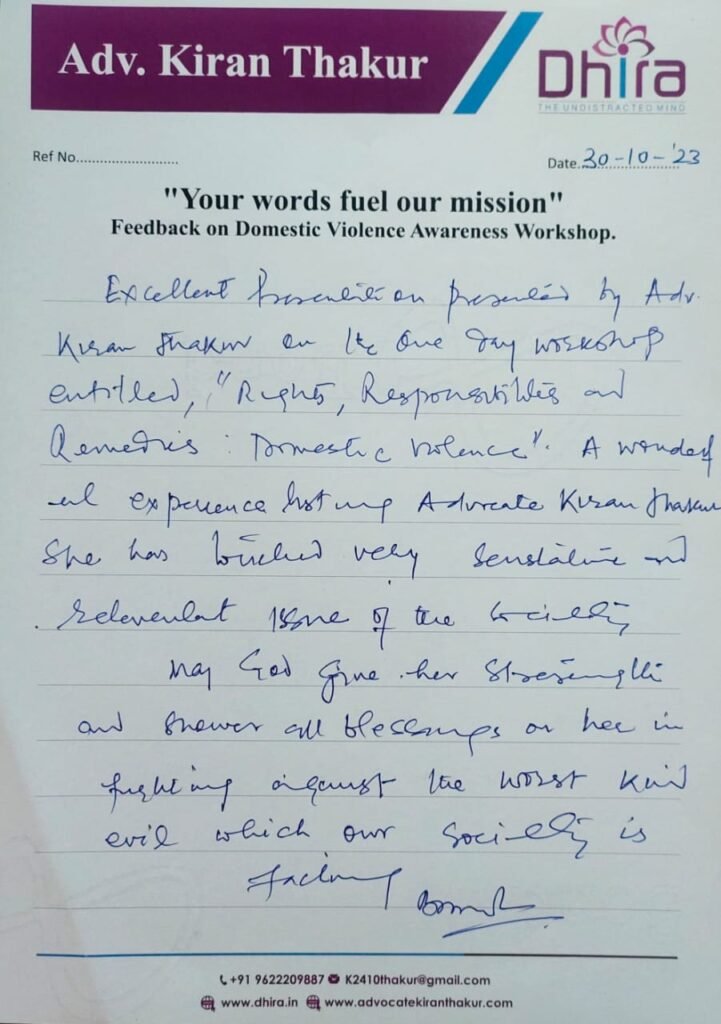 Adv. Kiran Thakur
Dhira
THE UNDISTRACTED MIND
Ref No..........................
Date. 30-10-'23
"Your words fuel our mission"
Feedback on Domestic Violence Awareness Workshop.
Excellent Presentation presented by Adv.
Kiran Thakur on the One Day workshop
entitled, "Rights, Responsibilities and
Remedies : Domestic Violence". A wonderf
ul experience listing Advocate Kiran Thakur
She has touched very senstative and
relevenlant issue of the society
May God give her strength
and shower all blessings on her in
fighting against the worst kind
evil which our society is
facing
+91 9622209887 K2410thakur@gmail.com
www.dhira.in www.advocatekiranthakur.com